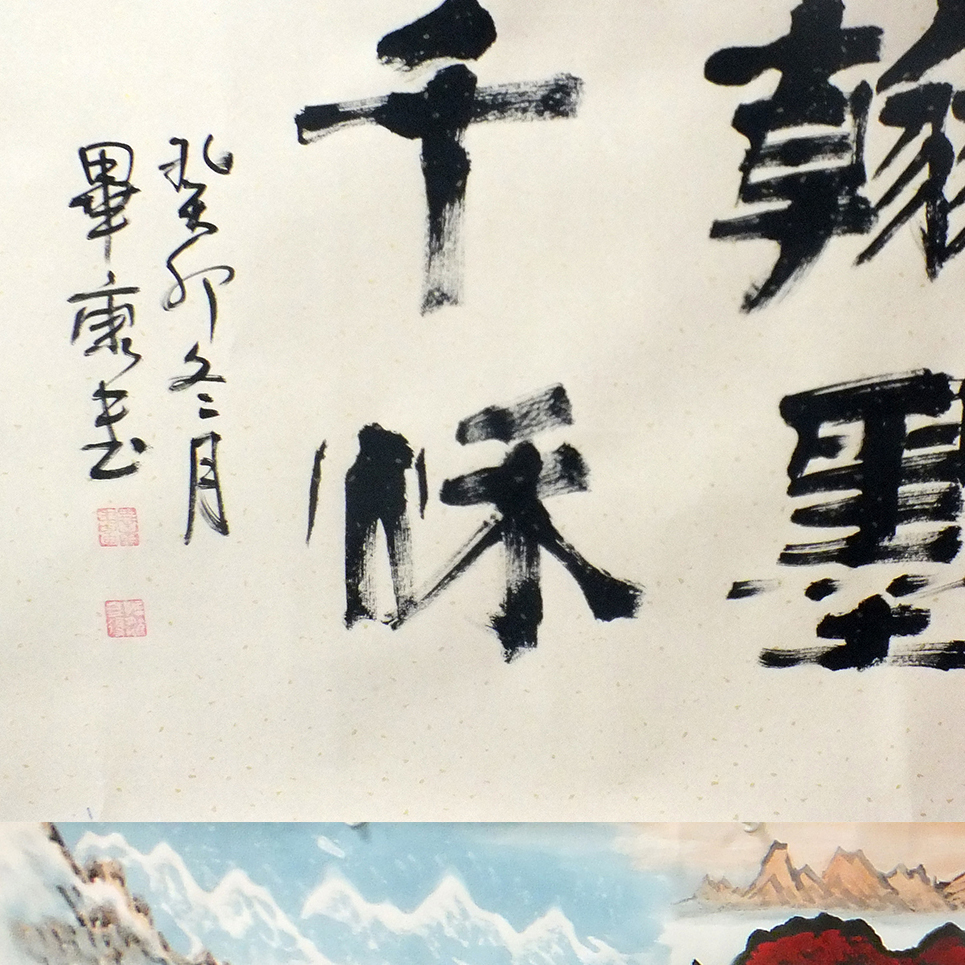 翰墨
千秌
癸卯冬月
畢康書